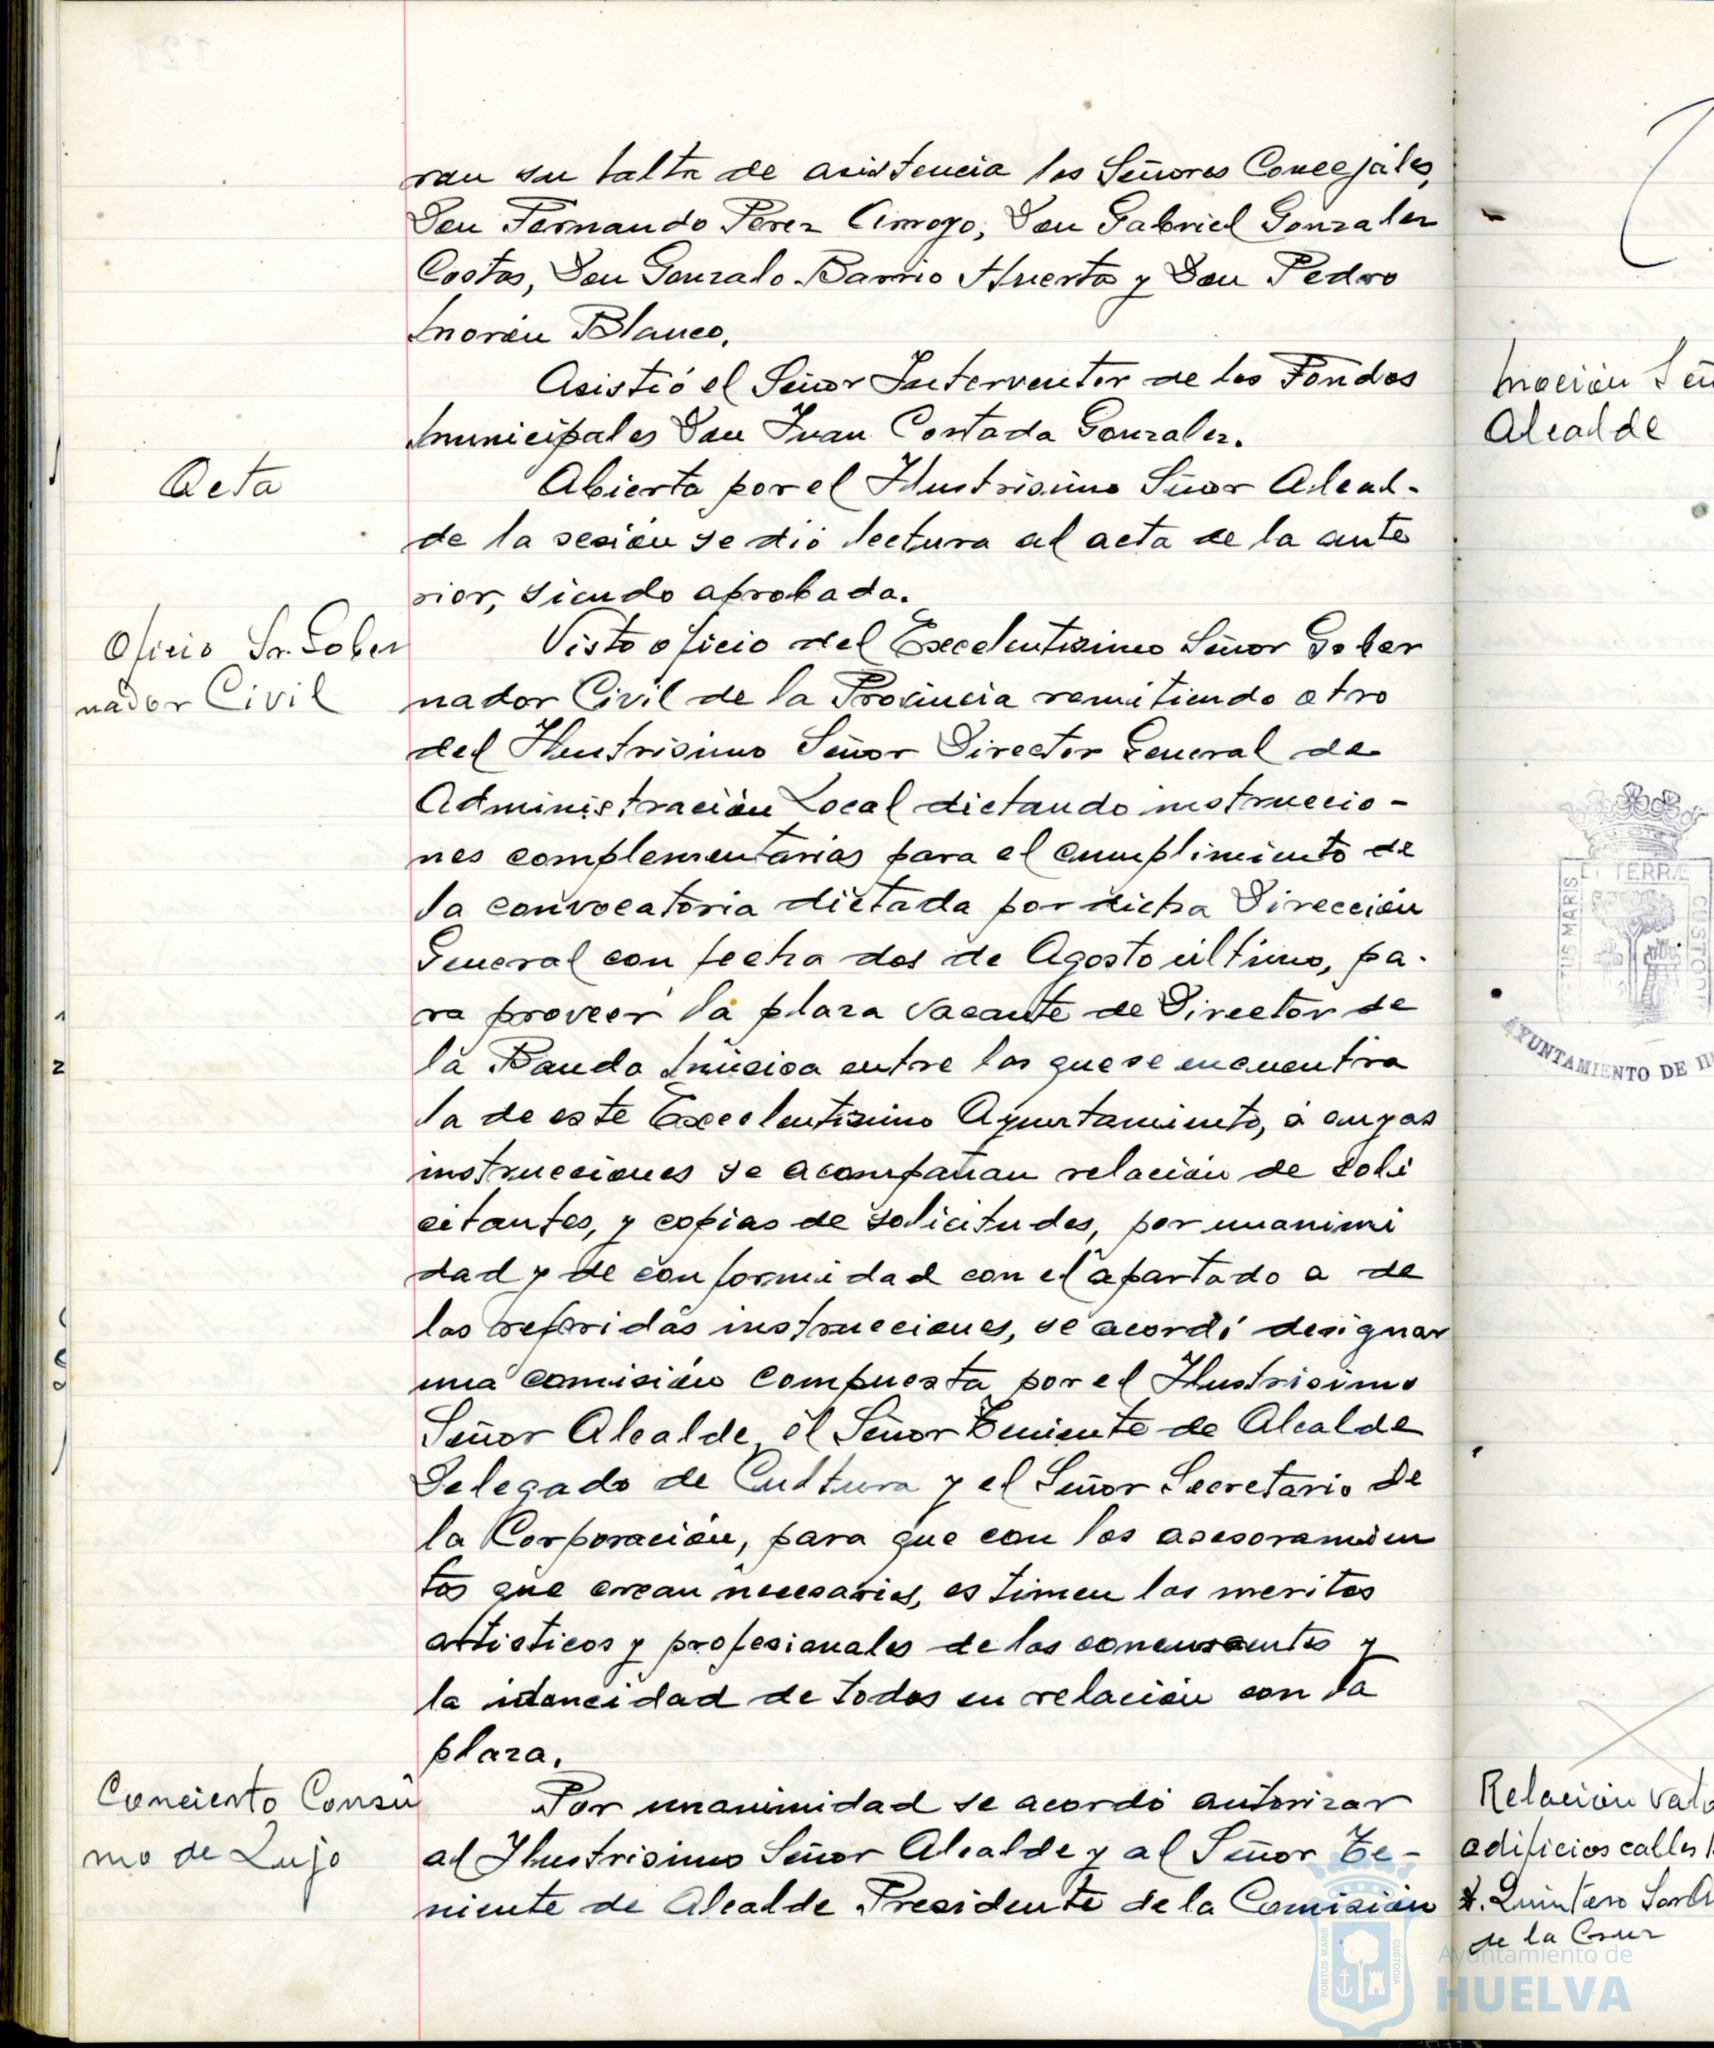 ran su falta de asistencia los Señores Concejales,
Don Fernando Perez Arroyo, Don Gabriel Gonzalez
Costas, Don Gonzalo Barrio Huerta y Don Pedro
Morón Blanco.
Asistió el Señor Interventor de los Fondos
Municipales Don Juan Contada Gonzalez.
Acta
Abierta por el Ilustrisimo Señor Alcal-
de la sesión se dió lectura al acta de la ante
rior, siendo aprobada.
Oficio Sr. Gober
nador Civil
Visto oficio del Excelentisimo Señor Gober
nador Civil de la Provincia remitiendo otro
del Ilustrisimo Señor Director General de
Administración Local dictando instruccio-
nes complementarias para el cumplimiento de
la convocatoria dictada por dicha Dirección
General con fecha dos de Agosto último, pa-
ra proveer la plaza vacante de Director de
la Banda Música entre las que se encuentra
la de este Excelentisimo Ayuntamiento, á cuyas
instrucciones se acompañan relación de soli
citantes, y copias de solicitudes, por unanimi
dad y de conformidad con el apartado a de
las referidas instrucciones, se acordó designar
una comisión compuesta por el Ilustrisimo
Señor Alcalde, el Señor Teniente de Alcalde
Delegado de Cultura y el Señor Secretario de
la Corporación, para que con los asesoramien
tos que crean necesarios, estimen los meritos
artisticos y profesionales de los concursantes y
la idoneidad de todos en relación con la
plaza.
Concierto Consu
mo de Lujo
Por unanimidad se acordó autorizar
al Ilustrisimo Señor Alcalde y al Señor Te-
niente de Alcalde Presidente de la Comisión
Moción Señ
Alcalde
ET TERRÆ
CUSTOD
AYUNTAMIENTO DE H
Relación valo
edificios calles
Quintero
de la Cruz
PORTUS MARIS
CUSTODIA
Ayuntamiento de
HUELVA